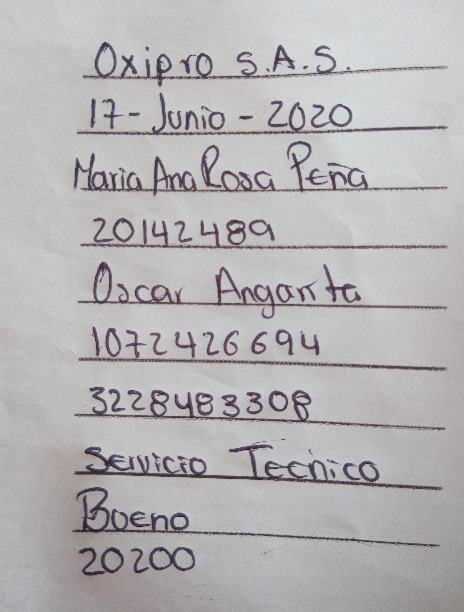 Oxipro S.A.S.
17-Junio-2020
Maria Ana Rosa Peña
20142489
Oscar Angarita
1072426694
3228483308
Servicio Tecnico
Bueno
20200